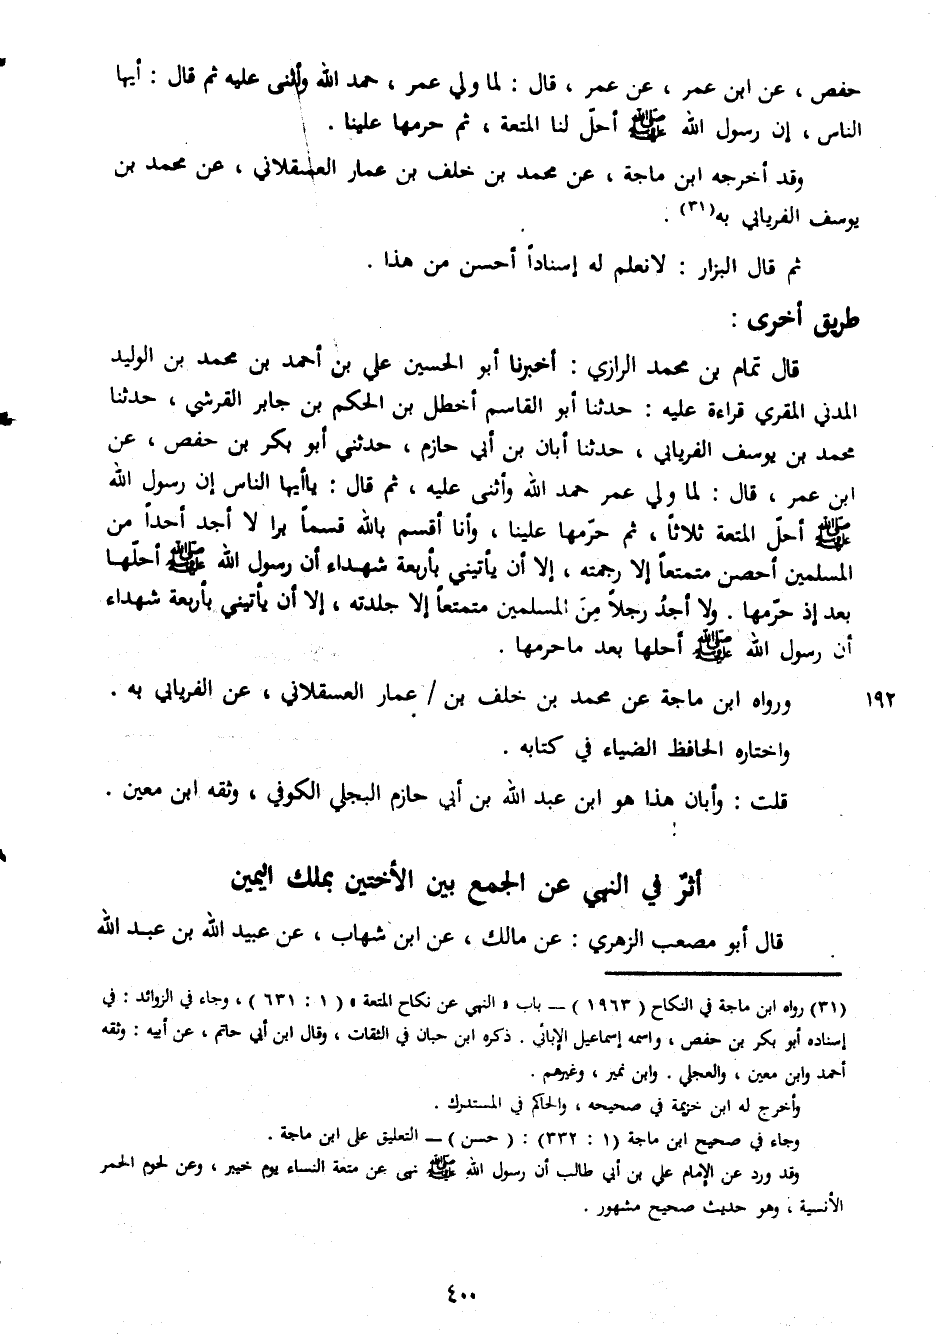 حفص ، عن ابن عمر ، عن عمر ، قال : لما ولي عمر ، حمد الله وأثنى عليه ثم قال : أيها
الناس ، إن رسول الله ﷺ أحلّ لنا المتعة ، ثم حرمها علينا .
وقد أخرجه ابن ماجة ، عن محمد بن خلف بن عمار العسقلاني ، عن محمد بن
يوسف الفريابي به(٣١) .
ثم قال البزار : لانعلم له إسناداً أحسن من هذا .
طريق أخرى :
قال تمام بن محمد الرازي : أخبرنا أبو الحسين علي بن أحمد بن محمد بن الوليد
المدني المقري قراءة عليه : حدثنا أبو القاسم أخطل بن الحكم بن جابر القرشي ، حدثنا
محمد بن يوسف الفريابي ، حدثنا أبان بن أبي حازم ، حدثني أبو بكر بن حفص ، عن
ابن عمر ، قال : لما ولي عمر حمد الله وأثنى عليه ، ثم قال : ياأيها الناس إن رسول الله
ﷺ أحلّ المتعة ثلاثاً ، ثم حرّمها علينا ، وأنا أقسم بالله قسماً برا لا أجد أحداً من
المسلمين أحصن متمتعاً إلا رجمته ، إلا أن يأتيني بأربعة شهداء أن رسول الله ﷺ أحلّها
بعد إذ حرّمها . ولا أجدُ رجلاً مِنَ المسلمين متمتعاً إلا جلدته ، إلا أن يأتيني بأربعة شهداء
أن رسول الله ﷺ أحلها بعد ماحرمها .
ورواه ابن ماجة عن محمد بن خلف بن / عمار العسقلاني ، عن الفريابي به . ١٩٢
واختاره الحافظ الضياء في كتابه .
قلت : وأبان هذا هو ابن عبد الله بن أبي حازم البجلي الكوفي ، وثقه ابن معين .
أثرٌ في النهي عن الجمع بين الأختين بملك اليمين
قال أبو مصعب الزهري : عن مالك ، عن ابن شهاب ، عن عبيد الله بن عبد الله
(٣١) رواه ابن ماجة في النكاح ( ١٩٦٣ ) — باب « النهي عن نكاح المتعة » ( ١ : ٦٣١ ) ، وجاء في الزوائد : في
إسناده أبو بكر بن حفص ، واسمه إسماعيل الإبائي . ذكره ابن حبان في الثقات ، وقال ابن أبي حاتم ، عن أبيه : وثقه
أحمد وابن معين ، والعجلي . وابن نمير ، وغيرهم .
وأخرج له ابن خزيمة في صحيحه ، والحاكم في المستدرك .
وجاء في صحيح ابن ماجة (١ : ٣٣٢) : ( حسن ) — التعليق على ابن ماجة .
وقد ورد عن الإمام علي بن أبي طالب أن رسول الله ﷺ نهى عن متعة النساء يوم خيبر ، وعن لحوم الحمر
الأنسية ، وهو حديث صحيح مشهور .
٤٠٠